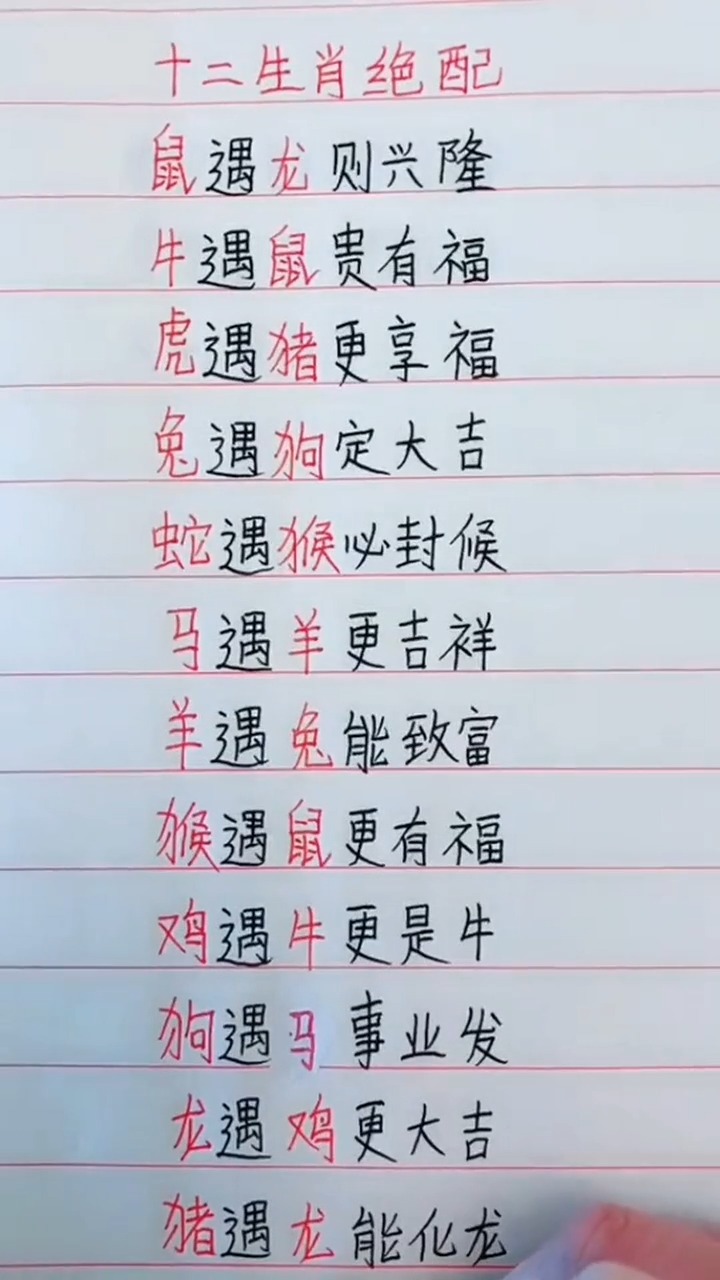 十二生肖绝配
鼠遇龙则兴隆
牛遇鼠贵有福
虎遇猪更享福
兔遇狗定大吉
蛇遇猴必封候
马遇羊更吉祥
羊遇兔能致富
猴遇鼠更有福
鸡遇牛更是牛
狗遇马事业发
龙遇鸡更大吉
猪遇龙能化龙